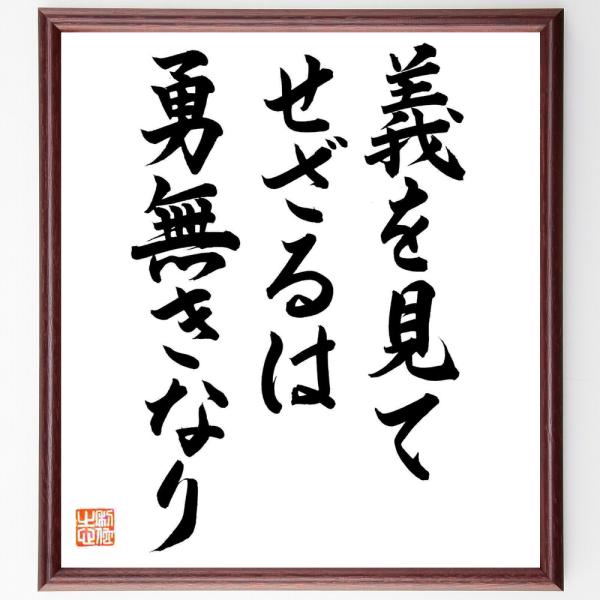 義を見て
せざるは
勇無きなり